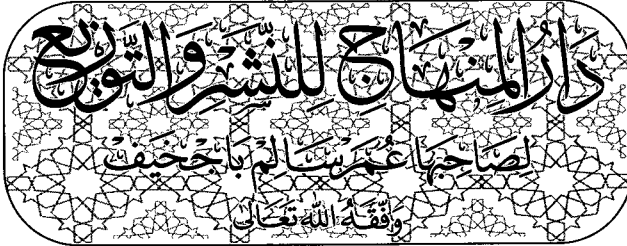 دَارُ المِنهَاج لِلنَّشْرِ وَالتَّوْزِيعِ
لِصَاحِبِهَا عُمَر سَالِم بَاجْخَيف
وَفَّقَهُ اللهُ تَعَالَى